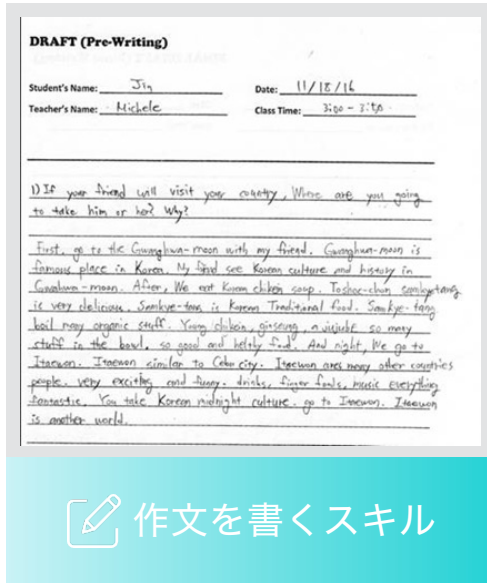 DRAFT (Pre-Writing)
Student's Name: Jin Date: 11/18/16
Teacher's Name: Michele Class Time: 3:00 - 3:50
1) If your friend will visit your country, Where are you going
to take him or her? Why?
First, go to the Gwanghwa-moon with my friend. Gwanghwa-moon is
famous place in Korea. My find see Korean culture and history in
Gwanghwa-moon. After, We eat Korean chiken soup. Toshoc-chon samkyetang
is very delicious. Samkye-tang is Korean Traditional food. Samkye-tang
boil many organic stuff. Young chiken, ginseng, a jujube so many
stuff in the bowl. so good and helthy food. And night, We go to
Itaewon. Itaewon similar to Cebu city. Itaewon ares many other countries
people. very exciting and funny. drinks, finger foods, music everything
fantastic. You take Korean midnight culture. go to Itaewon. Itaewon
is another world.
作文を書くスキル